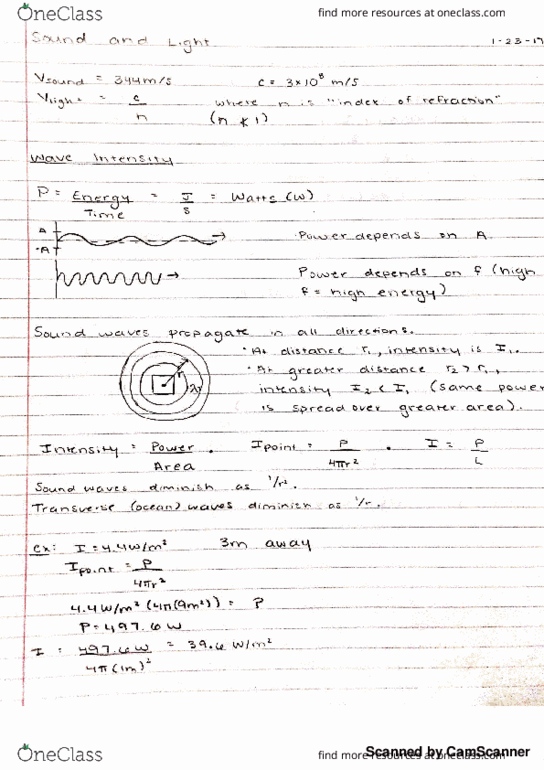 OneClass
find more resources at oneclass.com
Sound and Light
1-23-17
Vsound = 344m/s
c = 3x10⁸ m/s
Vlight = c/n where n is "index of refraction"
(n ≮ 1)
Wave Intensity
P = Energy/Time = J/s = Watts (W)
A
-A
Power depends on A.
Power depends on f (high
f = high energy)
Sound waves propagate in all directions.
· At distance r₁, intensity is I₁.
· At greater distance r₂ > r₁,
intensity I₂ < I₁ (same power
is spread over greater area).
Intensity = Power/Area . Ipoint = P/4πr² . I = P/L
Sound waves diminish as 1/r².
Transverse (ocean) waves diminish as 1/r.
ex: I = 4.4W/m² 3m away
Ipoint = P/4πr²
4.4W/m² (4π(9m²)) = P
P = 497.6 W
I = 497.6W/4π(1m)² = 39.6 W/m²
OneClass
find more resources at oneclass.com
Scanned by CamScanner